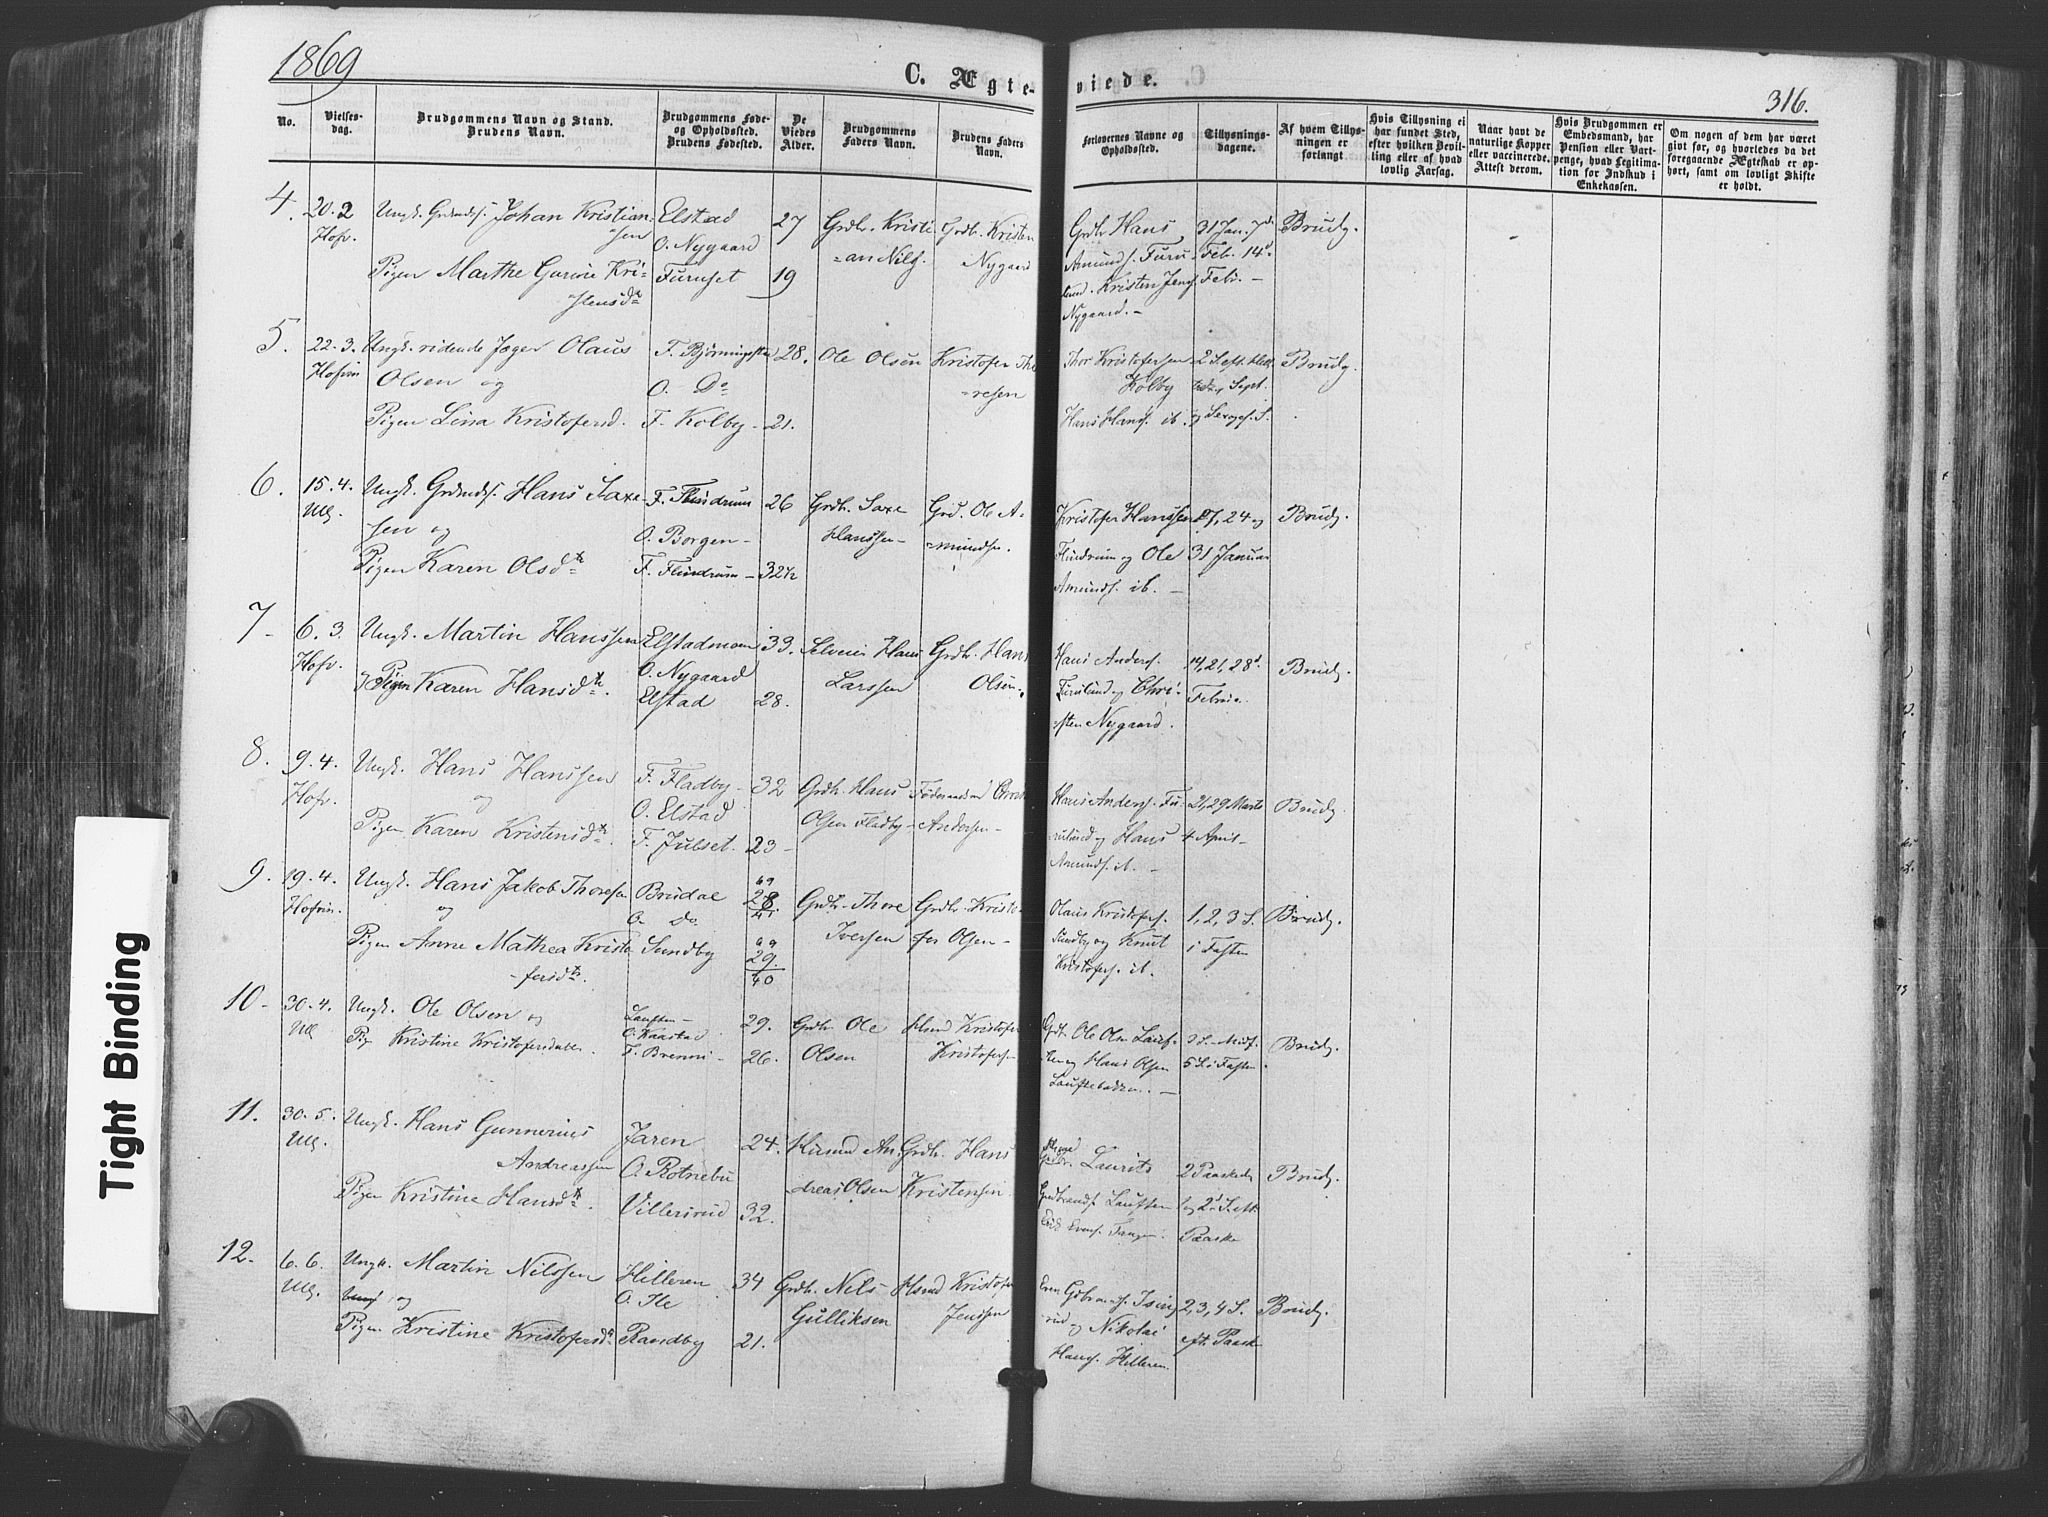 1869
C. Ægte-
viede.
316.
No.
Vielses-
dag.
Brudgommens Navn og Stand.
Brudens Navn.
Brudgommens Føde-
og Opholdssted.
Brudens Fødested.
De
Viedes
Alder.
Brudgommens
Faders Navn.
Brudens Faders
Navn.
Forlovernes Navne og
Opholdssted.
Tillysnings-
dagene.
Af hvem Tillys-
ningen er
forlangt.
Hvis Tillysning ei
har fundet Sted,
efter hvilken Bevil-
ling eller af hvad
lovlig Aarsag.
Naar havt de
naturlige Kopper
eller vaccinerede.
Attest derom.
Hvis Brudgommen er
Embedsmand, har
Pension eller Vart-
penge, hvad Legitima-
tion for Indskud i
Enkekassen.
Om nogen af dem har været
givt før, og hvorledes da det
foregaaende Ægteskab er op-
hørt, samt om lovligt Skifte
er holdt.
4.
20. 2
Hofv.
Ungk. Johan Kristian-
sen
Pigen Marthe Gurine Kri-
stensdr
Elstad
O. Nygaard
Furuset
27
19
Grdbr. Kristi-
an Nils.
Grdbr. Kristen
Nygaard
Grdbr Hans
Amunds. Furu-
lund. Kristen Jens.
Nygaard. -
31 Jan. 7de
Feb. 14d
Feb. -
Brudg.
5.
22. 3.
Hofvin
Ungk. ridende Jæger Olaus
Olsen og
Pigen Lina Kristofersd.
O. Do
F. Kolby
28.
21.
Ole Olsen
Kristofer Tho-
resen
Thor Kristofersen
Kolby
Hans Hans. ib.
Brudg.
6.
15. 4.
Ull.
Ungk. Grdmds. Hans Saxe-
sen og
Pigen Karen Olsdtr
F. Flindrum
O. Borgen -
F. Flindrum -
26
32½
Grdbr. Saxe
Hanssen -
Grd. Ole A-
mundsen.
Kristofer Hanssen
Flindrum og Ole
Amunds. ib. -
17, 24 og
31 Januar
Brudg.
7
6. 3.
Hofv.
Ungk. Martin Hanssen
og Pigen Karen Hansdtr.
O. Nygaard
Elstad
33.
28.
Selveier Hans
Larssen
Grdbr. Hans
Olsen.
Hans Anders.
Furulund og Chri-
sten Nygaard.
14, 21, 28d
Brudg.
8.
9. 4.
Hofv.
Ungk. Hans Hanssen
og
Pigen Karen Kristensdtr.
F. Fladby
O. Elstad
F. Julset.
32
23 -
Grdbr. Hans
Olsen Fladby -
Føderaadsmd
Andersen -
Hans Anders. Fu-
rulund og Hans
Amunds. ib. -
21, 29 Marts
4 April -
Brudg.
9.
19. 4.
Hofvin.
Ungk. Hans Jakob Thoresen
og
Pigen Anne Mathea Kristo-
fersdtr.
Brudal
O. do
Sundby
69
28
41
69
29.
40
Grdbr. Thore
Iversen
Grdbr. Kristo-
fer Olsen -
Olaus Kristofers.
Sundby og Knut
Kristofers. ib.
1, 2, 3 S.
i Fasten
Brudg.
10 -
30. 4.
Ull
Ungk. Ole Olsen og
Pig. Kristine Kristofersdatter.
29.
26.
Grdbr Ole
Olsen
Hsmd Kristofer
Kristofersen
Grdbr. Ole Olsen
og Hans Olsen
5 S i Fasten
Brudg.
11.
30. 5.
Ull.
Ungk. Hans Gunnerius
Andreassen
Pigen Kristine Hansdtr.
Jaren
O. Rotnebu
Villersrud
24.
32.
Husmd An-
dreas Olsen
Grdbr. Hans
Kristensen
Laurits
Gudbrands.
2 Paaskedag
og 2. S. eft.
Paaske
Brudg.
12.
6. 6.
Ull.
Ungk. Martin Nilssen
og
Pigen Kristine Kristofersdr
Hilleren
O. Ile
Randby
34
21.
Grdbr. Nils
Gulliksen
Hsmd Kristofer
Jenssen
Even Gdbrands.
og Nikolai
Hans. Hilleren.
2, 3, 4 S.
eft. Paaske
Brudg.
Tight Binding